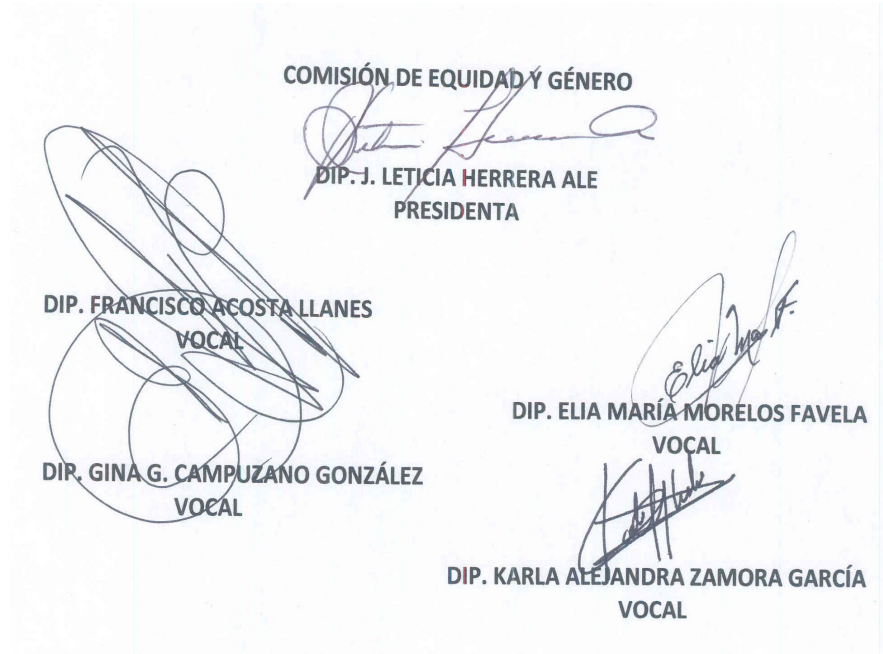 COMISIÓN DE EQUIDAD Y GÉNERO
DIP. J. LETICIA HERRERA ALE
PRESIDENTA
DIP. FRANCISCO ACOSTA LLANES
VOCAL
DIP. ELIA MARÍA MORELOS FAVELA
VOCAL
DIP. GINA G. CAMPUZANO GONZÁLEZ
VOCAL
DIP. KARLA ALEJANDRA ZAMORA GARCÍA
VOCAL